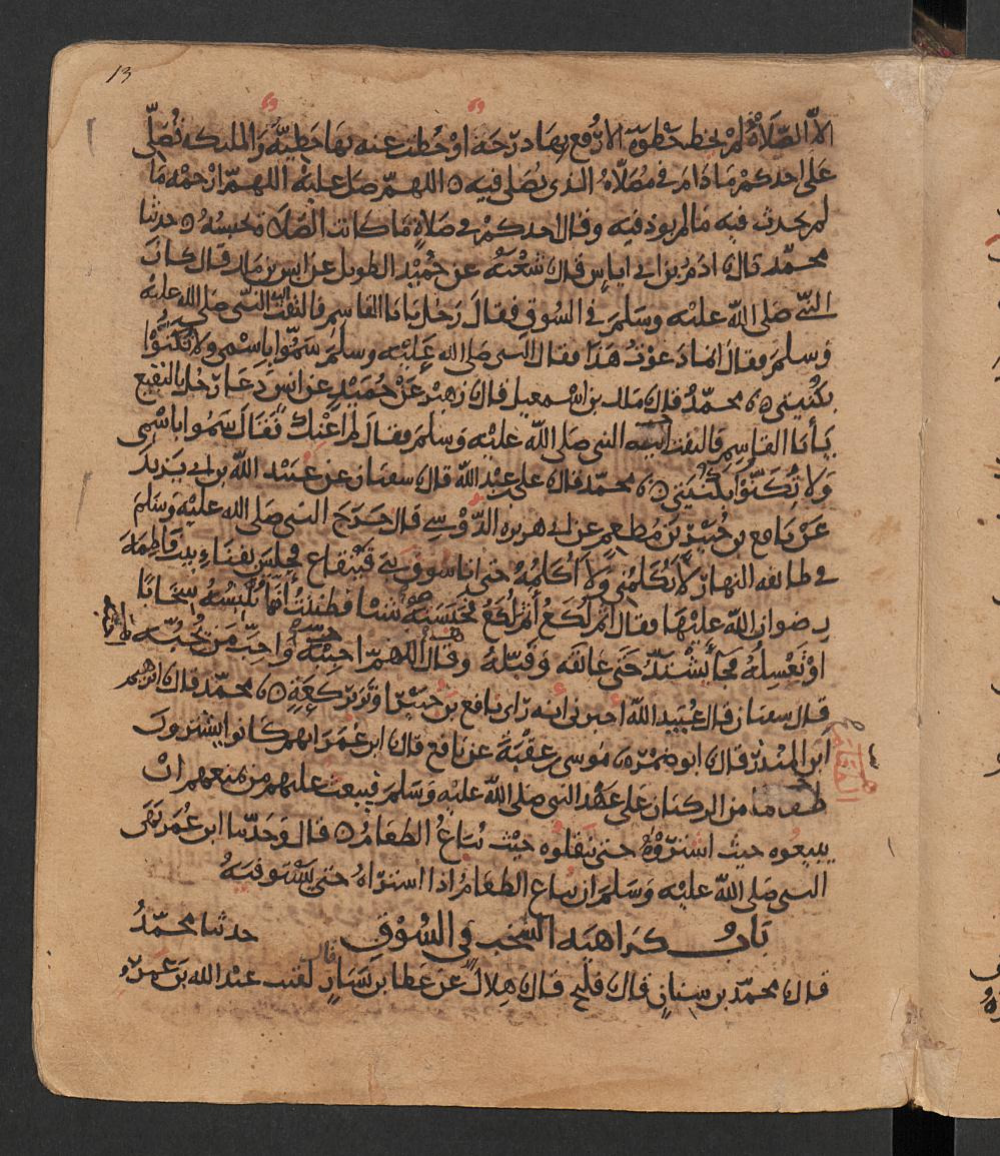 13
الا الصلاة لم يخط خطوة الا رفع بها درجة او حطت عنه بها خطية والمليكه تصلي
على احدكم ما دام في مصلاه الذي يصلي فيه اللهم صل عليه اللهم ارحمه ما
لم يحدث فيه ما لم يوذ فيه وقال احدكم في صلاة ما كانت الصلاة تحبسه حدثنا
محمد قال ادم بن ابي اياس قال شعبة عن حميد الطويل عن انس بن مالك قال كان
النبي صلى الله عليه وسلم في السوق فقال رجل يا ابا القاسم فالتفت اليه النبي صلى الله عليه
وسلم فقال انما دعوت هذا فقال النبي صلى الله عليه وسلم سموا باسمي ولا تكنوا
بكنيتي محمد قال مالك بن اسمعيل قال زهير عن حميد عن انس دعا رجل بالبقيع
يا ابا القاسم فالتفت اليه النبي صلى الله عليه وسلم فقال لم اعنك فقال سموا باسمي
ولا تكنوا بكنيتي محمد قال علي بن عبد الله قال سفيان عن عبيد الله بن ابي يزيد
عن نافع بن جبير بن مطعم عن ابي هريره الدوسي قال خرج النبي صلى الله عليه وسلم
في طائفه النهار لا يكلمني ولا اكلمه حتى اتا سوق بني قينقاع فجلس بفناء بيت فاطمة
رضوان الله عليها فقال اثم لكع اثم لكع فحبسته شيا فظننت انها تلبسه سخابا
او تغسله فجا يشتد حتى عانقه وقبله وقال اللهم احبه واحب من يحبه
قال سفيان قال عبيد الله اخبرني انه راى نافع بن جبير اوتر بركعة محمد قال ابرهيم
ابن المنذر قال ابو ضمرة موسى بن عقبة عن نافع قال ابن عمر انهم كانوا يشترون
طعاما من الركبان على عهد النبي صلى الله عليه وسلم فيبعث عليهم من يمنعهم ان
يبيعوه حيث اشتروه حتى ينقلوه حيث يباع الطعام قال وحدثنا ابن عمر نهى
النبي صلى الله عليه وسلم ان يباع الطعام اذا اشتراه حتى يستوفيه
باب كراهية السخب في السوق حدثنا محمد
قال محمد بن سنان قال فليح قال هلال عن عطا بن يسار قال لقيت عبد الله بن عمرو